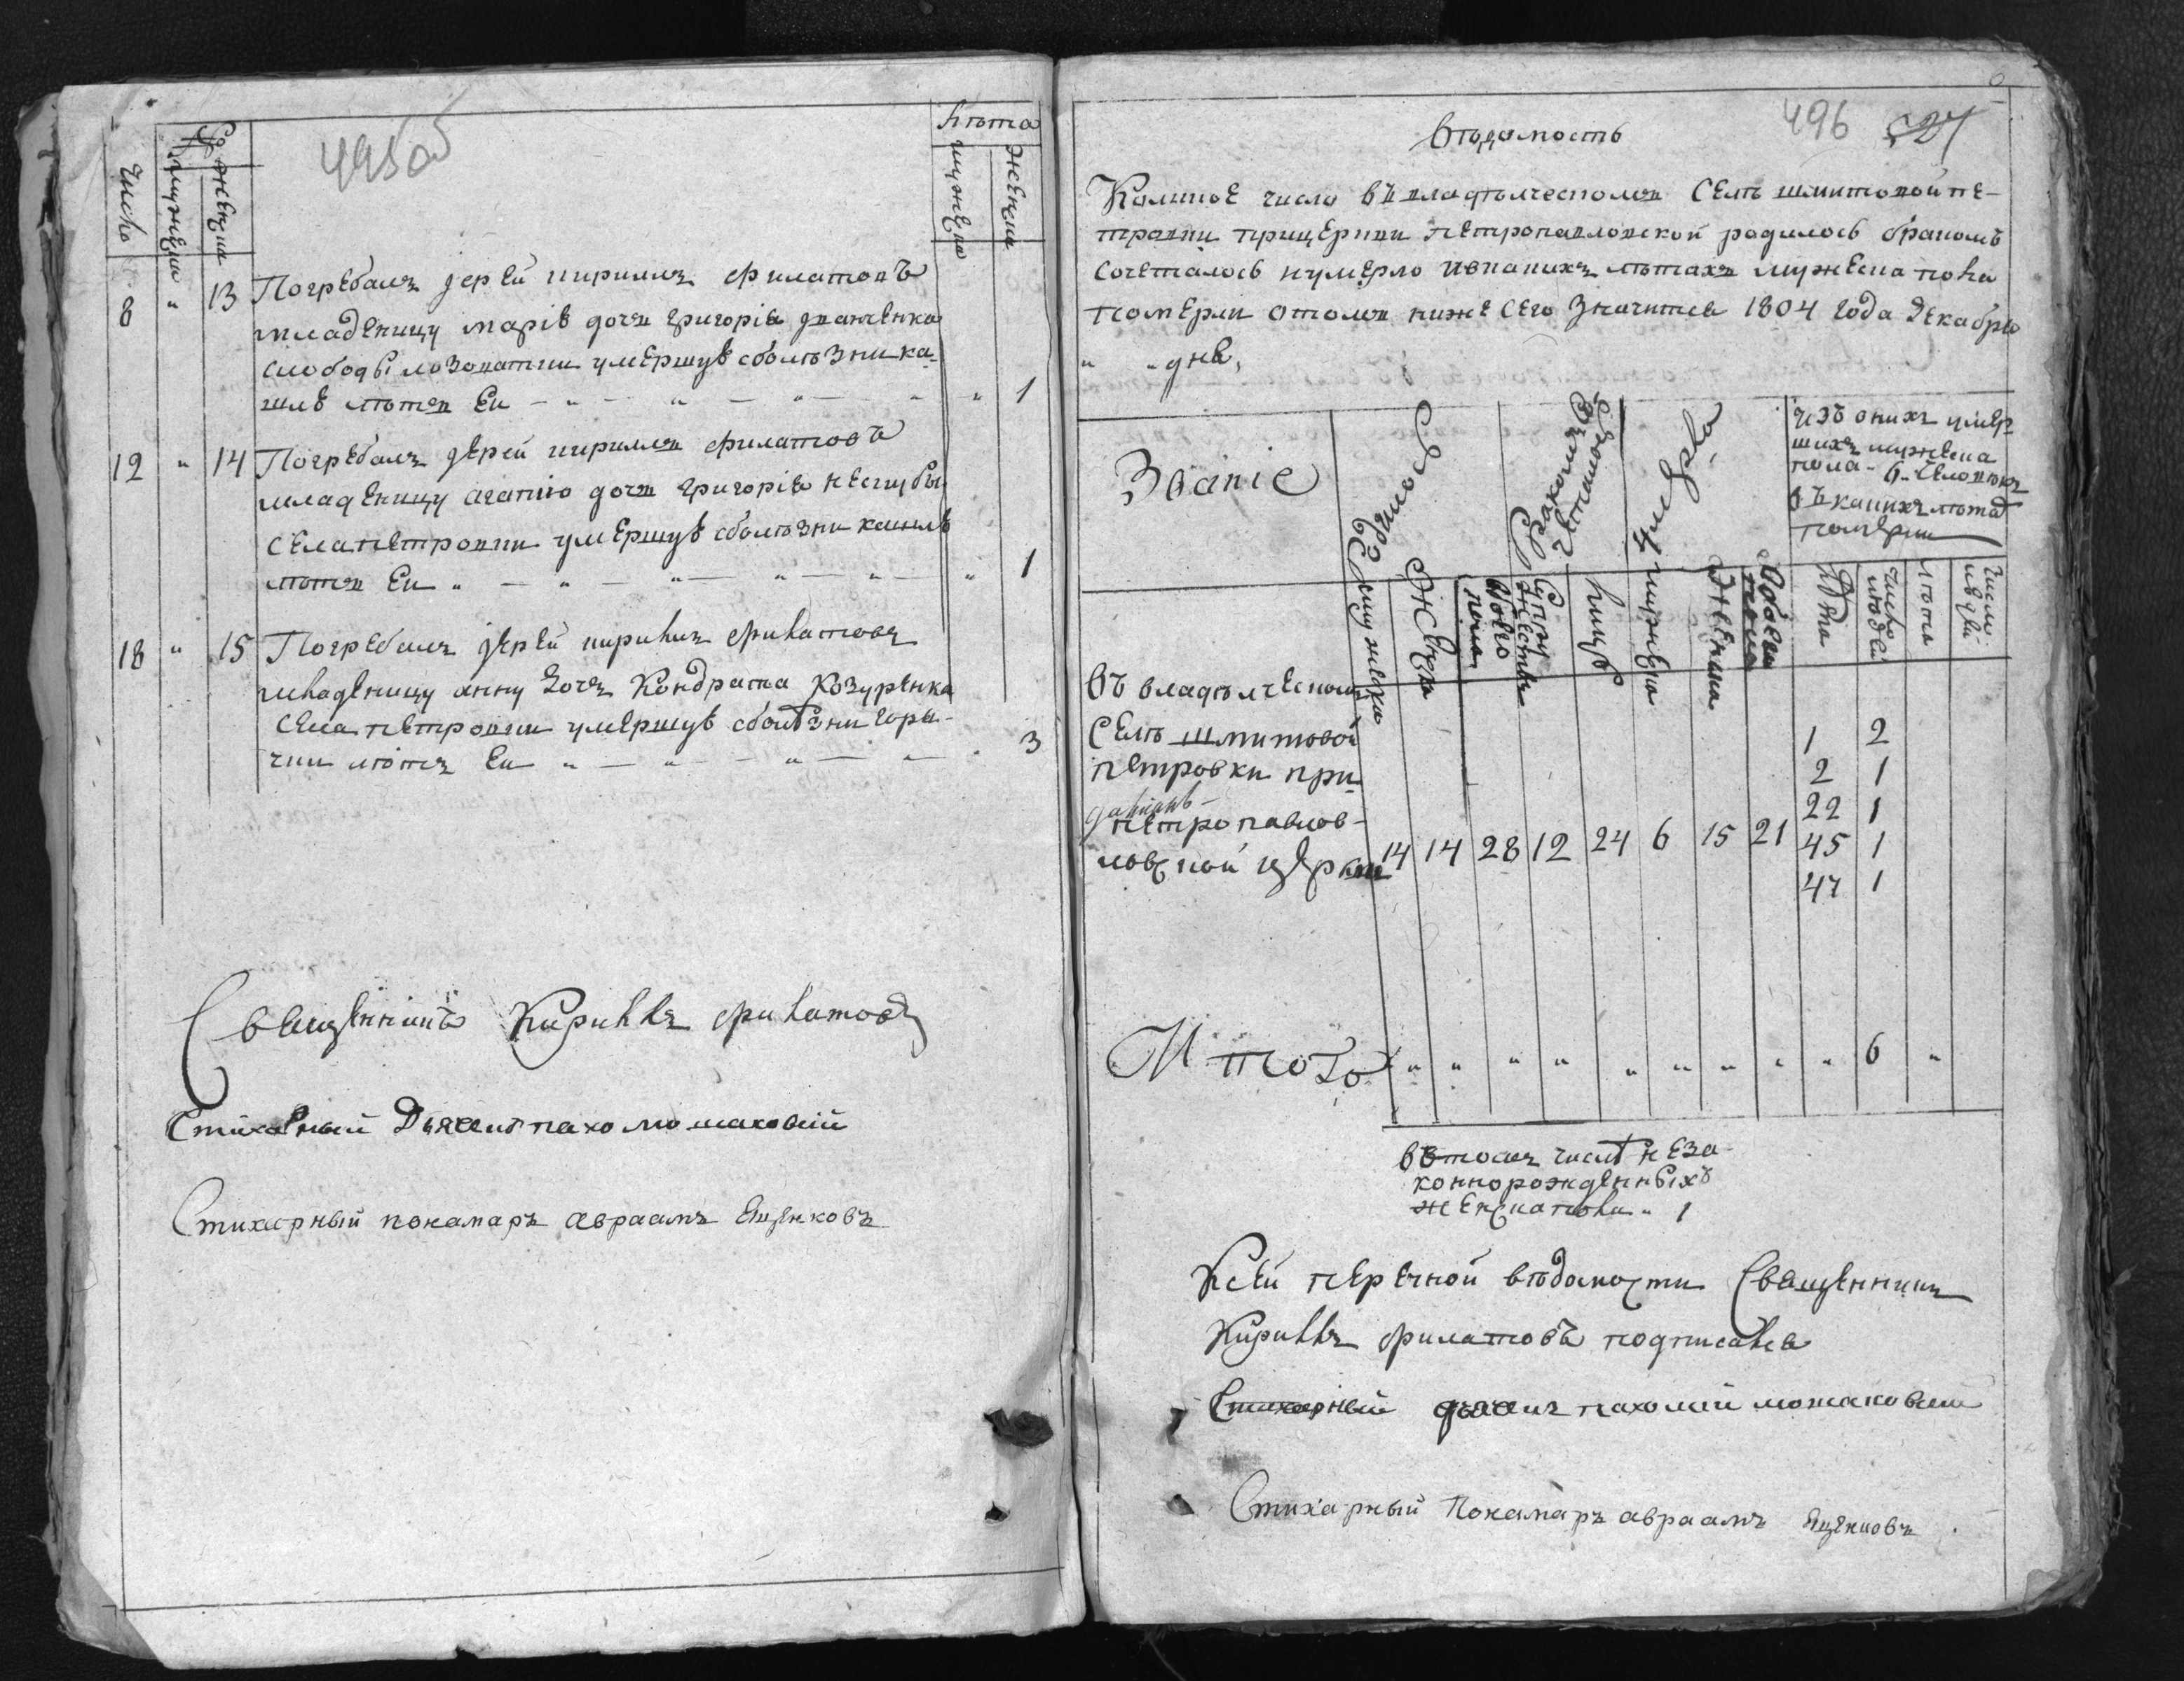 495об
Число
№
мужеска
женска
лѣта
мужеска
женска
8 " 13 Погребалъ іерей кириллъ филатовъ
младеницу марію дочь григорія
слободы лозоватки умершую сболѣзни ка-
шлю лѣтъ ей " 1
12 " 14 Погребалъ іерей кириллъ филатовъ
младеницу агапію дочь григорія
села петровки умершую сболѣзни кашлю
лѣтъ ей " " 1
18 " 15 Погребалъ іерей кирилъ филатовъ
младеницу анну дочь Кондрата Козуренка
села петровки умершую сболѣзни горя-
чки лѣтъ ей " " 3
Священникъ Кириллъ филатовъ
Стихарный Дьячокъ
Стихарный понамаръ авраамъ Ещенковъ
496
вѣдомость
Коликое число въ владѣлческомъ селѣ шмитовой пе-
тровки прицеркви петропавловской родилось бракомъ
сочеталось и умерло ивкакихъ лѣтахъ мужеска пола
померли отомъ ниже сего значится 1804 года декабря
" " дня,
Званіе
Родилось
Бракомъ сочеталось
Умерло
изъ онихъ умер
шихъ мужеска
пола 6 человѣкъ
въ какихъ лѣта
померли
мужеска
женска
обоего пола
супружествъ
лицъ
мужеска
женска
обоего пола
лѣта
число людей
лѣта
число людей
въ владѣлческомъ
селѣ шмитовой
петровки при
петропавлов-
ловской церкви 14 14 28 12 24 6 15 21
1 2
2 1
22 1
45 1
47 1
Итого " " " " " " " " " 6 "
въ томъ числѣ неза-
коннорожденныхъ
женска пола " 1
Ксей перечной вѣдомости Священникъ
Кириллъ филатовъ подписался
Стихарный дьячокъ пахомій
Стихарный Понамаръ авраамъ Ещенковъ